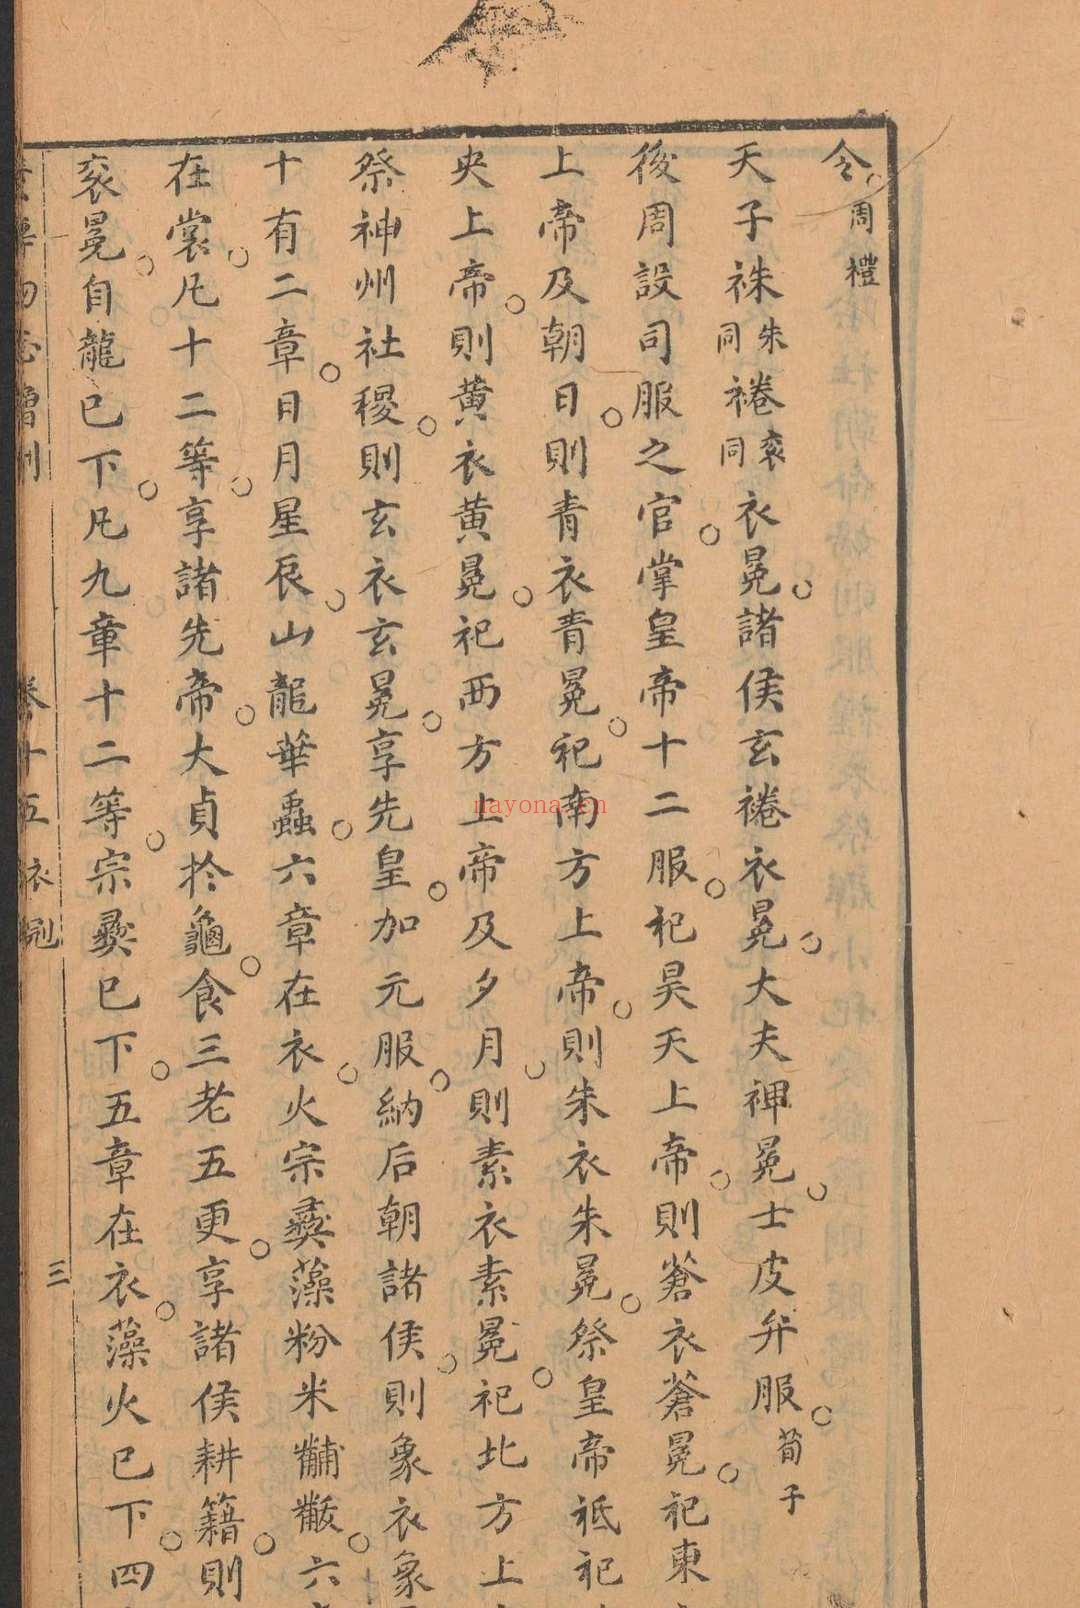 令。周禮
天子袾朱同裷衮同衣冕。諸侯玄裷衣冕。大夫裨冕。士皮弁服。荀子
後周設司服之官。掌皇帝十二服。祀昊天上帝。則蒼衣蒼冕。祀東
上帝及朝日。則青衣青冕。祀南方上帝。則朱衣朱冕。祭皇帝祗祀
央上帝。則黄衣黄冕。祀西方上帝及夕月。則素衣素冕。祀北方上
祭神州社稷。則玄衣玄冕。享先皇。加元服。納后朝諸侯。則象衣象
十有二章。日月星辰。山龍華蟲。六章在衣。火宗彝藻粉米黼黻。六
在裳。凡十二等。享諸先帝。大貞於龜。食三老五更。享諸侯耕籍。則
衮冕。自龍已下。凡九章十二等。宗彝已下。五章在衣。藻火已下。四
卷十五 衣冠
三
nayona.cn